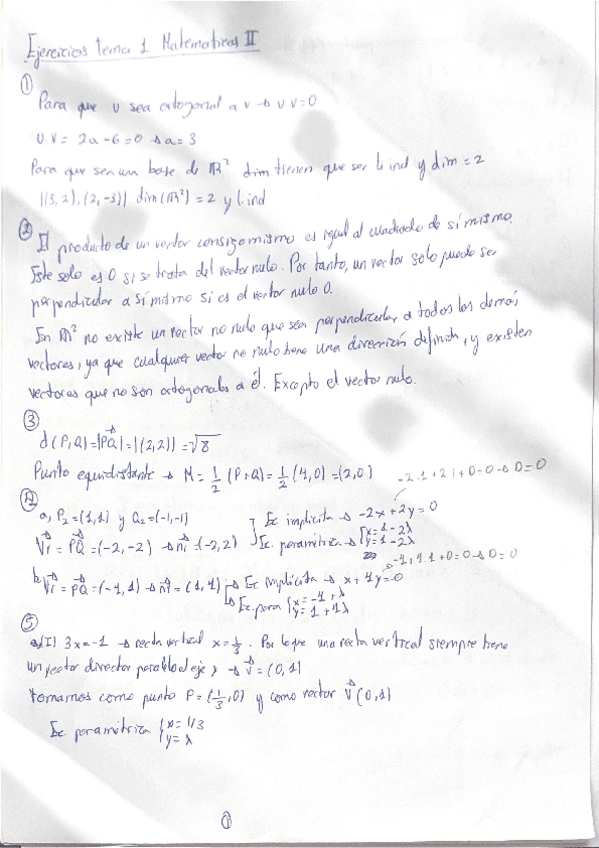 Ejercicios tema 1 Matematicas II
①
Para que u sea ortogonal a v → u v = 0
u.v = 2a - 6 = 0 → a = 3
Para que sean base de ℝ² tienen que ser l.ind y dim = 2
{(3,2), (2,-3)} dim(ℝ²) = 2 y l.ind
② El producto de un vector consigo mismo es igual al cuadrado de sí mismo.
Este solo es 0 si se trata del vector nulo. Por tanto, un vector solo puede ser
perpendicular a sí mismo si es el vector nulo 0.
En ℝ² no existe un vector no nulo que sea perpendicular a todos los demás
vectores, ya que cualquier vector no nulo tiene una dirección definida, y existen
vectores que no son ortogonales a él. Excepto el vector nulo.
③
d(P,Q) = |PQ| = |(2,2)| = √8
Punto equidistante → M = 1/2 (P+Q) = 1/2 (4,0) = (2,0)
-2·1 + 2·1 + D = 0 → D = 0
④
a, P₂ = (1,1) y Q₂ = (-1,-1)
Ec implícita → -2x + 2y = 0
Vr = PQ = (-2,-2) → nr = (-2,2)
Ec. paramétrica → {x = 1 - 2λ
y = 1 - 2λ
-1 + 1·1 + D = 0 → D = 0
b, Vr = PQ = (-1,1) → nr = (1,1) → Ec implícita → x + 1y = 0
Ec. para {x = -1 + λ
y = 1 + 1λ
⑤
a) I) 3x = -1 → recta vertical x = 1/3. Por lo que una recta vertical siempre tiene
un vector director paralelo al eje y → V = (0,1)
Tomamos como punto P = (1/3, 0) y como vector V (0,1)
Ec paramétrica {x = 1/3
y = λ
①